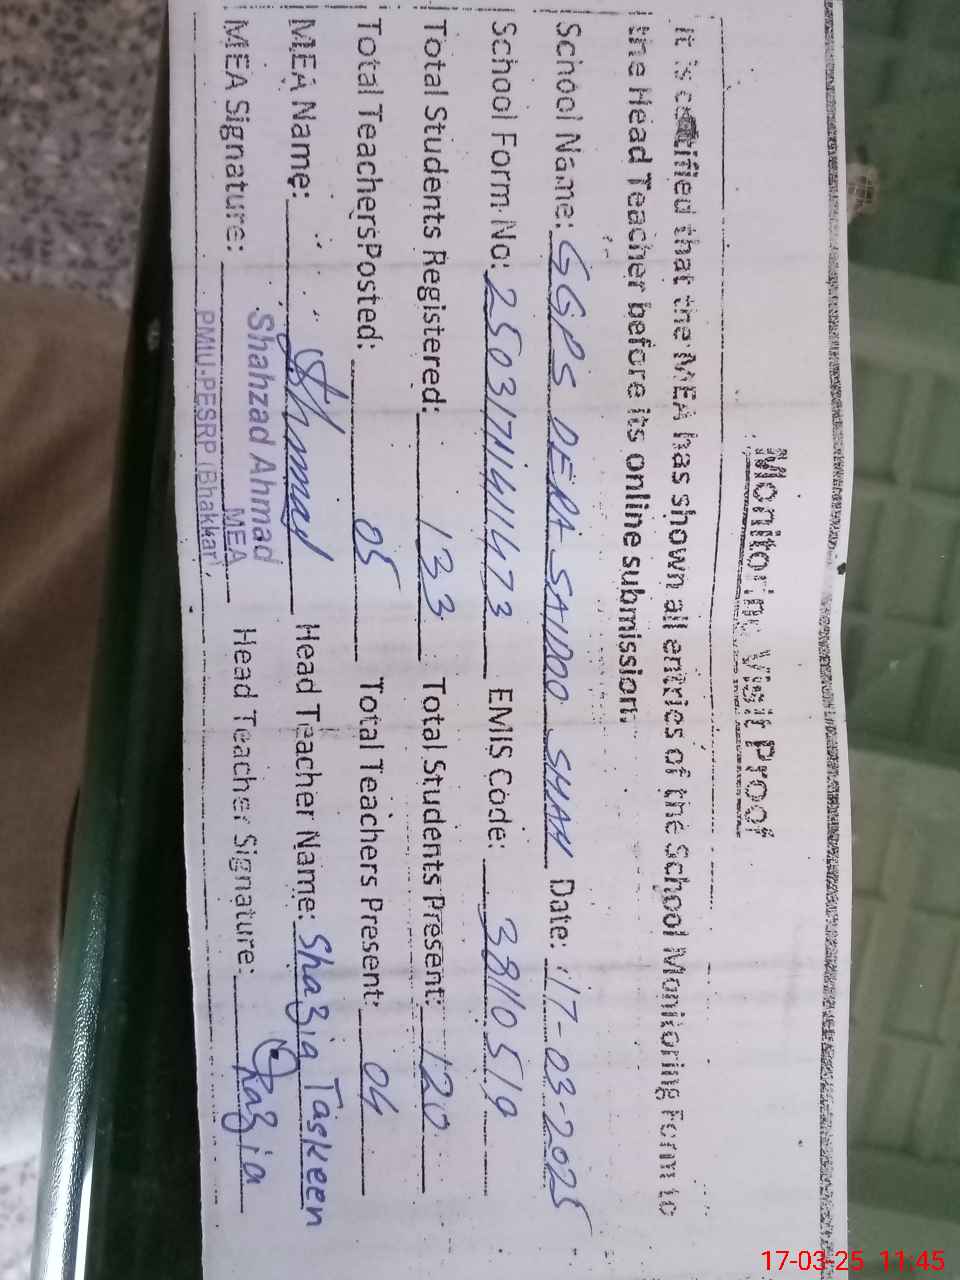 Monitoring Visit Proof
It is certified that the MEA has shown all entries of the School Monitoring Form to
the Head Teacher before its online submission:
School Name: GGPS DERA SAIDOO SHAH Date: 17-03-2025
School Form No: 25031714111473 EMIS Code: 38110519
Total Students Registered: 133 Total Students Present: 120
Total TeachersPosted: 05 Total Teachers Present: 04
MEA Name: Ahmad Head Teacher Name: Shazia Taskeen
MEA Signature: Head Teacher Signature: Razia
Shahzad Ahmad
MEA
PMIU-PESRP (Bhakkar)
17-03-25 11:45